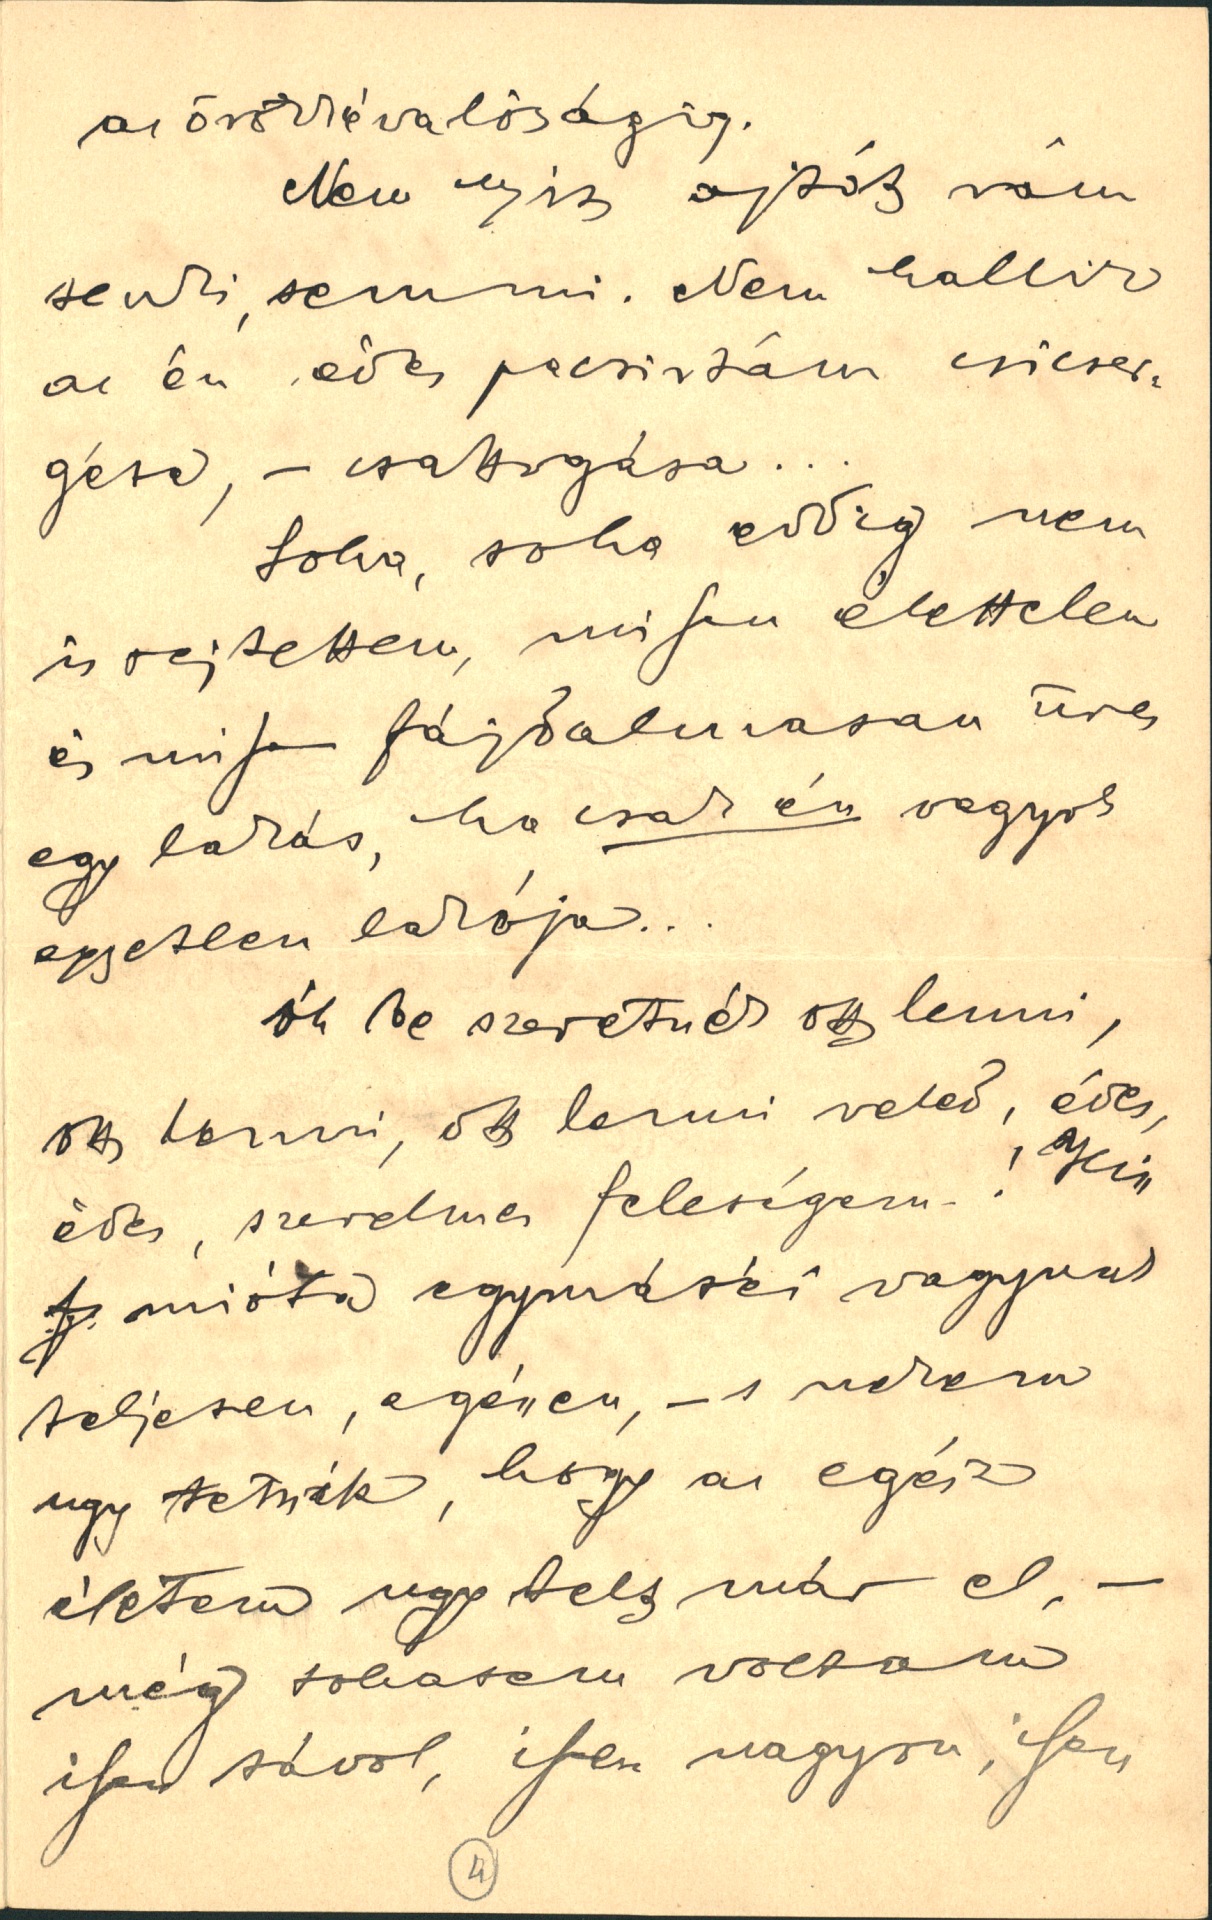 az örökkévalóságig.
Nem nyit ajtót rám
senki, semmi. Nem hallik
az én édes pacsirtám csicser-
gése, – csattogása...
Soha, soha eddig nem
is sejtettem, milyen élettelen
és milyen fájdalmasan üres
egy lakás, ha csak én vagyok
egyetlen lakója...
Óh be szeretnék ott lenni,
ott lenni, ott lenni veled, édes,
édes, szerelmes feleségem!
mióta egymáséi vagyunk
teljesen, egészen, – s nekem
ugy tetszik, hogy az egész
életem ugy telt már el, –
még sohasem voltam
ilyen távol, ilyen nagyon, ilyen
4